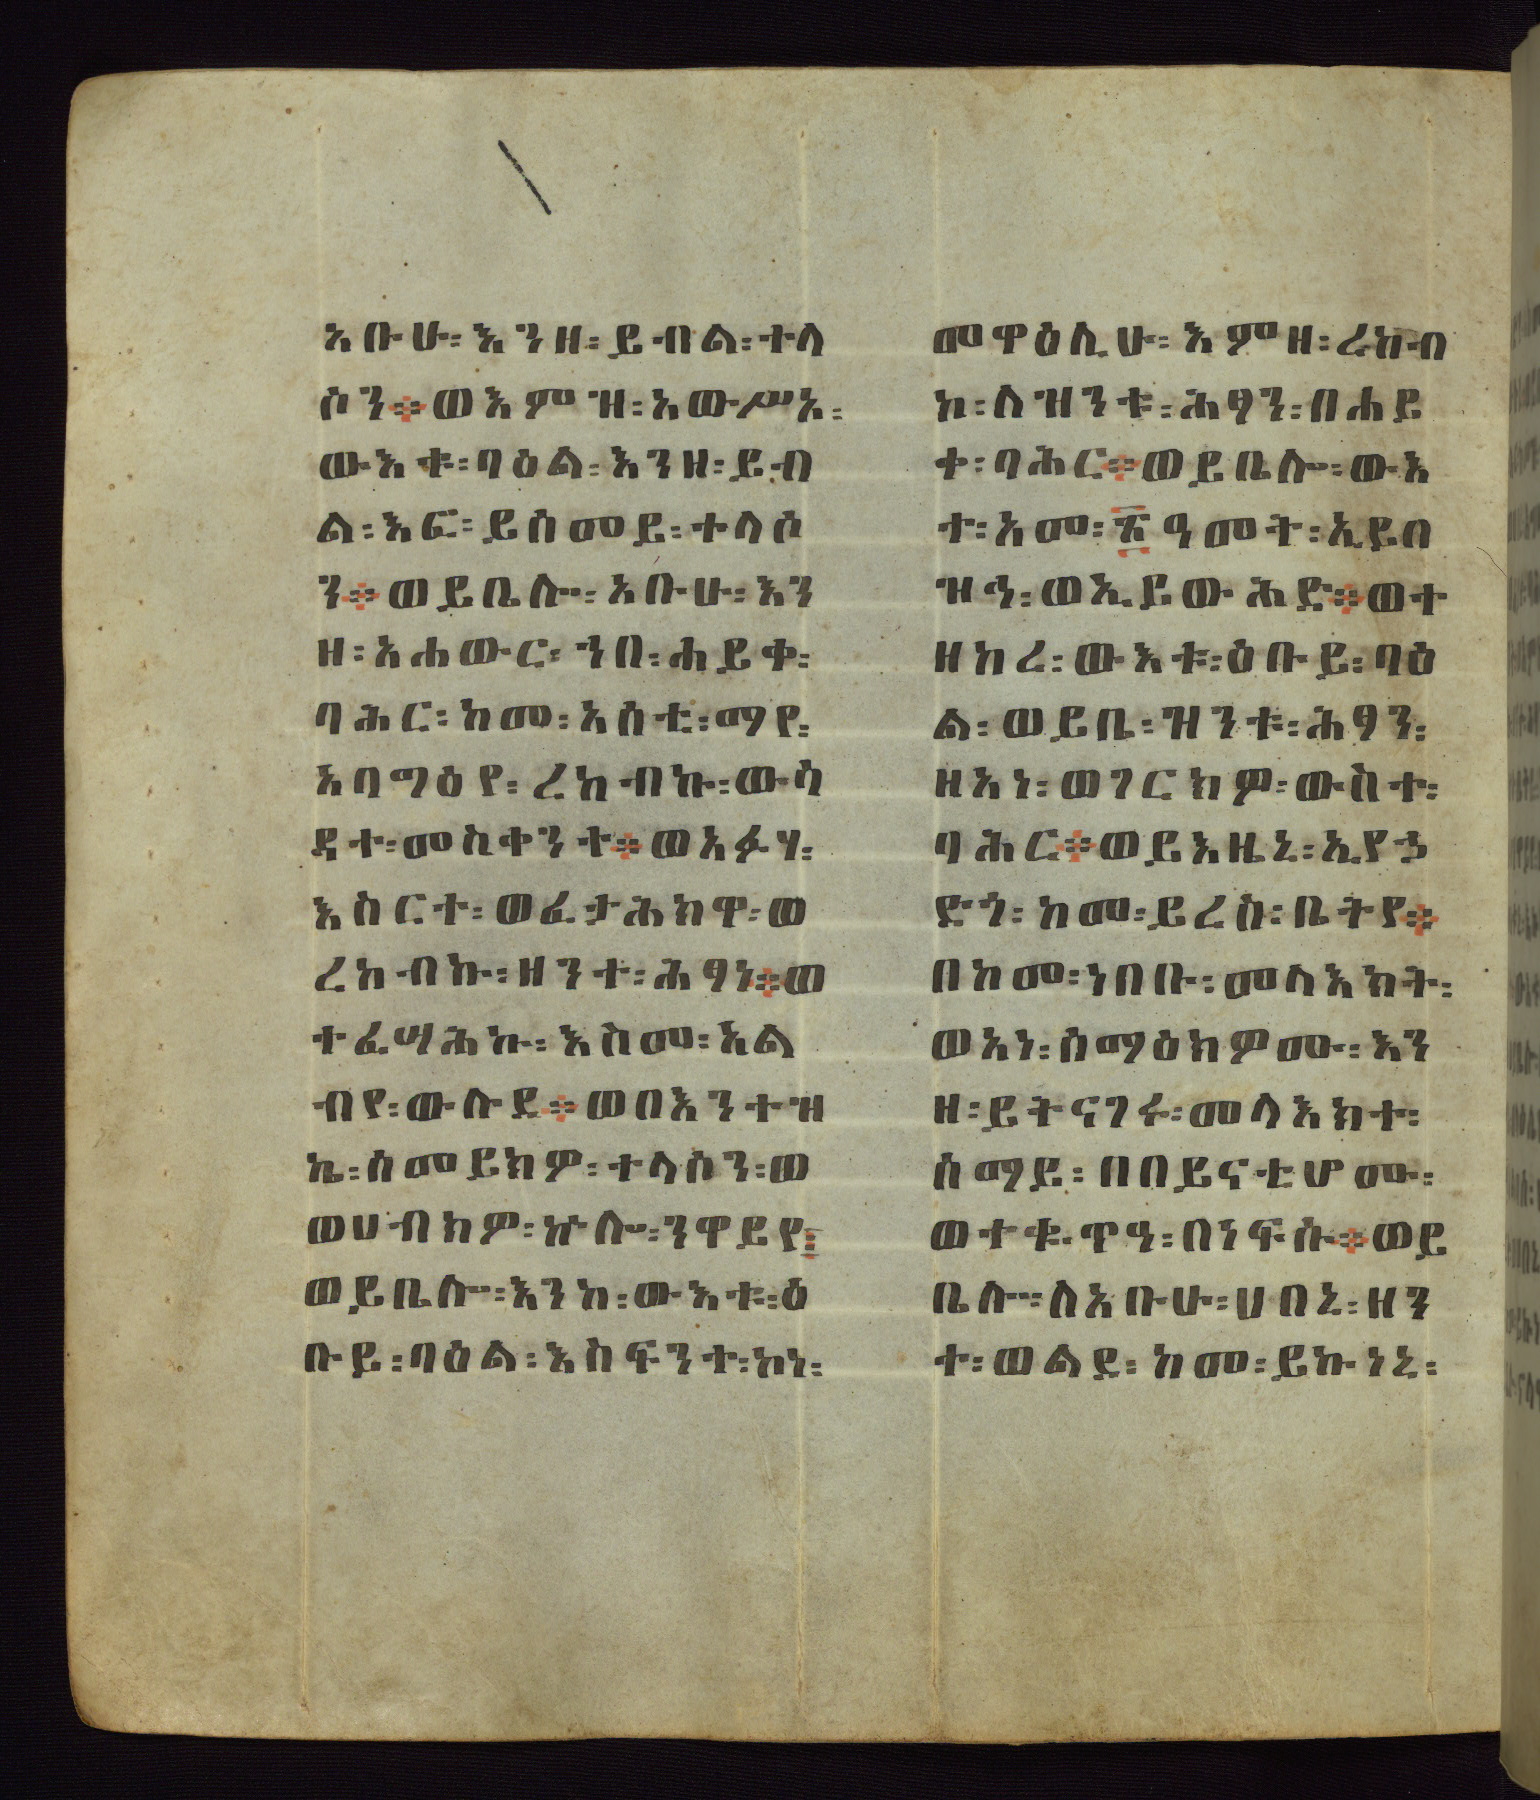 አቡሁ፡እንዘ፡ይብል፡ተላ
ሶን፨ወእምዝ፡አውሥአ፡
ውእቱ፡ባዕል፡እንዘ፡ይብ
ል፡እፎ፡ይሰመይ፡ተላሶ
ን፨ወይቤሎ፡አቡሁ፡እን
ዘ፡አሐውር፡ኀበ፡ሐይቀ፡
ባሕር፡ከመ፡አስቲ፡ማየ፡
አባግዕየ፡ረከብኩ፡ውሳ
ዳተ፡መስቀንተ፨ወአፉሃ፡
እስርተ፡ወፈታሕክዋ፡ወ
ረከብኩ፡ዘንተ፡ሕፃነ፨ወ
ተፈሣሕኩ፡እስመ፡አል
ብየ፡ውሉደ፨ወበእንተዝ
ኬ፡ሰመይክዎ፡ተላሶን፡ወ
ወሀብክዎ፡ኵሎ፡ንዋይየ፡
ወይቤሎ፡እንከ፡ውእቱ፡ዕ
ቡይ፡ባዕል፡እስፍንተ፡ኮነ፡
መዋዕሊሁ፡እምዘ፡ረከብ
ከ፡ለዝንቱ፡ሕፃን፡በሐይ
ቀ፡ባሕር፨ወይቤሎ፡ውእ
ተ፡አመ፡፳ዓመት፡ኢይበ
ዝኅ፡ወኢይውሕድ፨ወተ
ዘከረ፡ውእቱ፡ዕቡይ፡ባዕ
ል፡ወይቤ፡ዝንቱ፡ሕፃን፡
ዘአነ፡ወገርክዎ፡ውስተ፡
ባሕር፨ወይእዜኒ፡ኢየኃ
ድጎ፡ከመ፡ይረስ፡ቤትየ፨
በከመ፡ነበቡ፡መላእክት፡
ወአነ፡ሰማዕክዎሙ፡እን
ዘ፡ይትናገሩ፡መላእክተ፡
ሰማይ፡በበይናቲሆሙ፡
ወተቈጥዓ፡በነፍሱ፨ወይ
ቤሎ፡ለአቡሁ፡ሀበኒ፡ዘን
ተ፡ወልደ፡ከመ፡ይኩነኒ፡